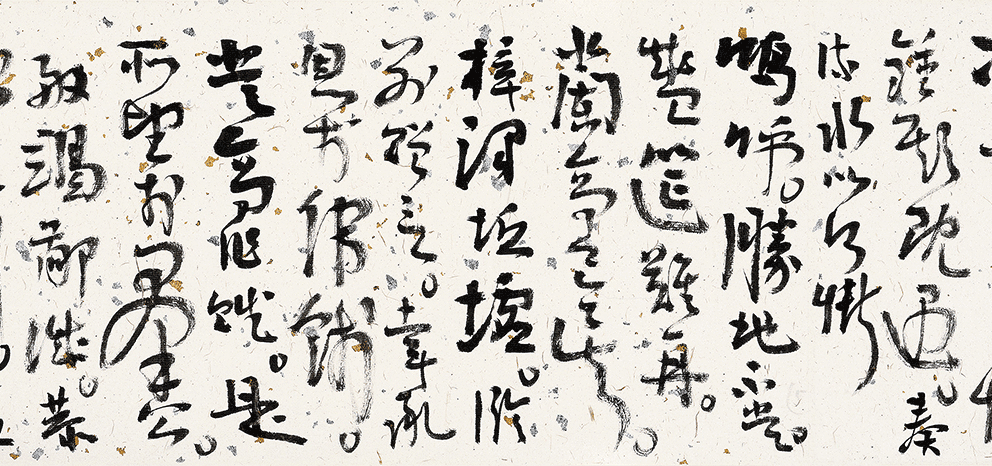 鍾期既遇。奏
流水以何慚
嗚呼。勝地不常
盛筵難再。
蘭亭已矣。
梓澤坵墟。臨
別贈言。幸承
恩於偉餞。
登高作賦。是
所望於羣公。
敢竭鄙誠。恭